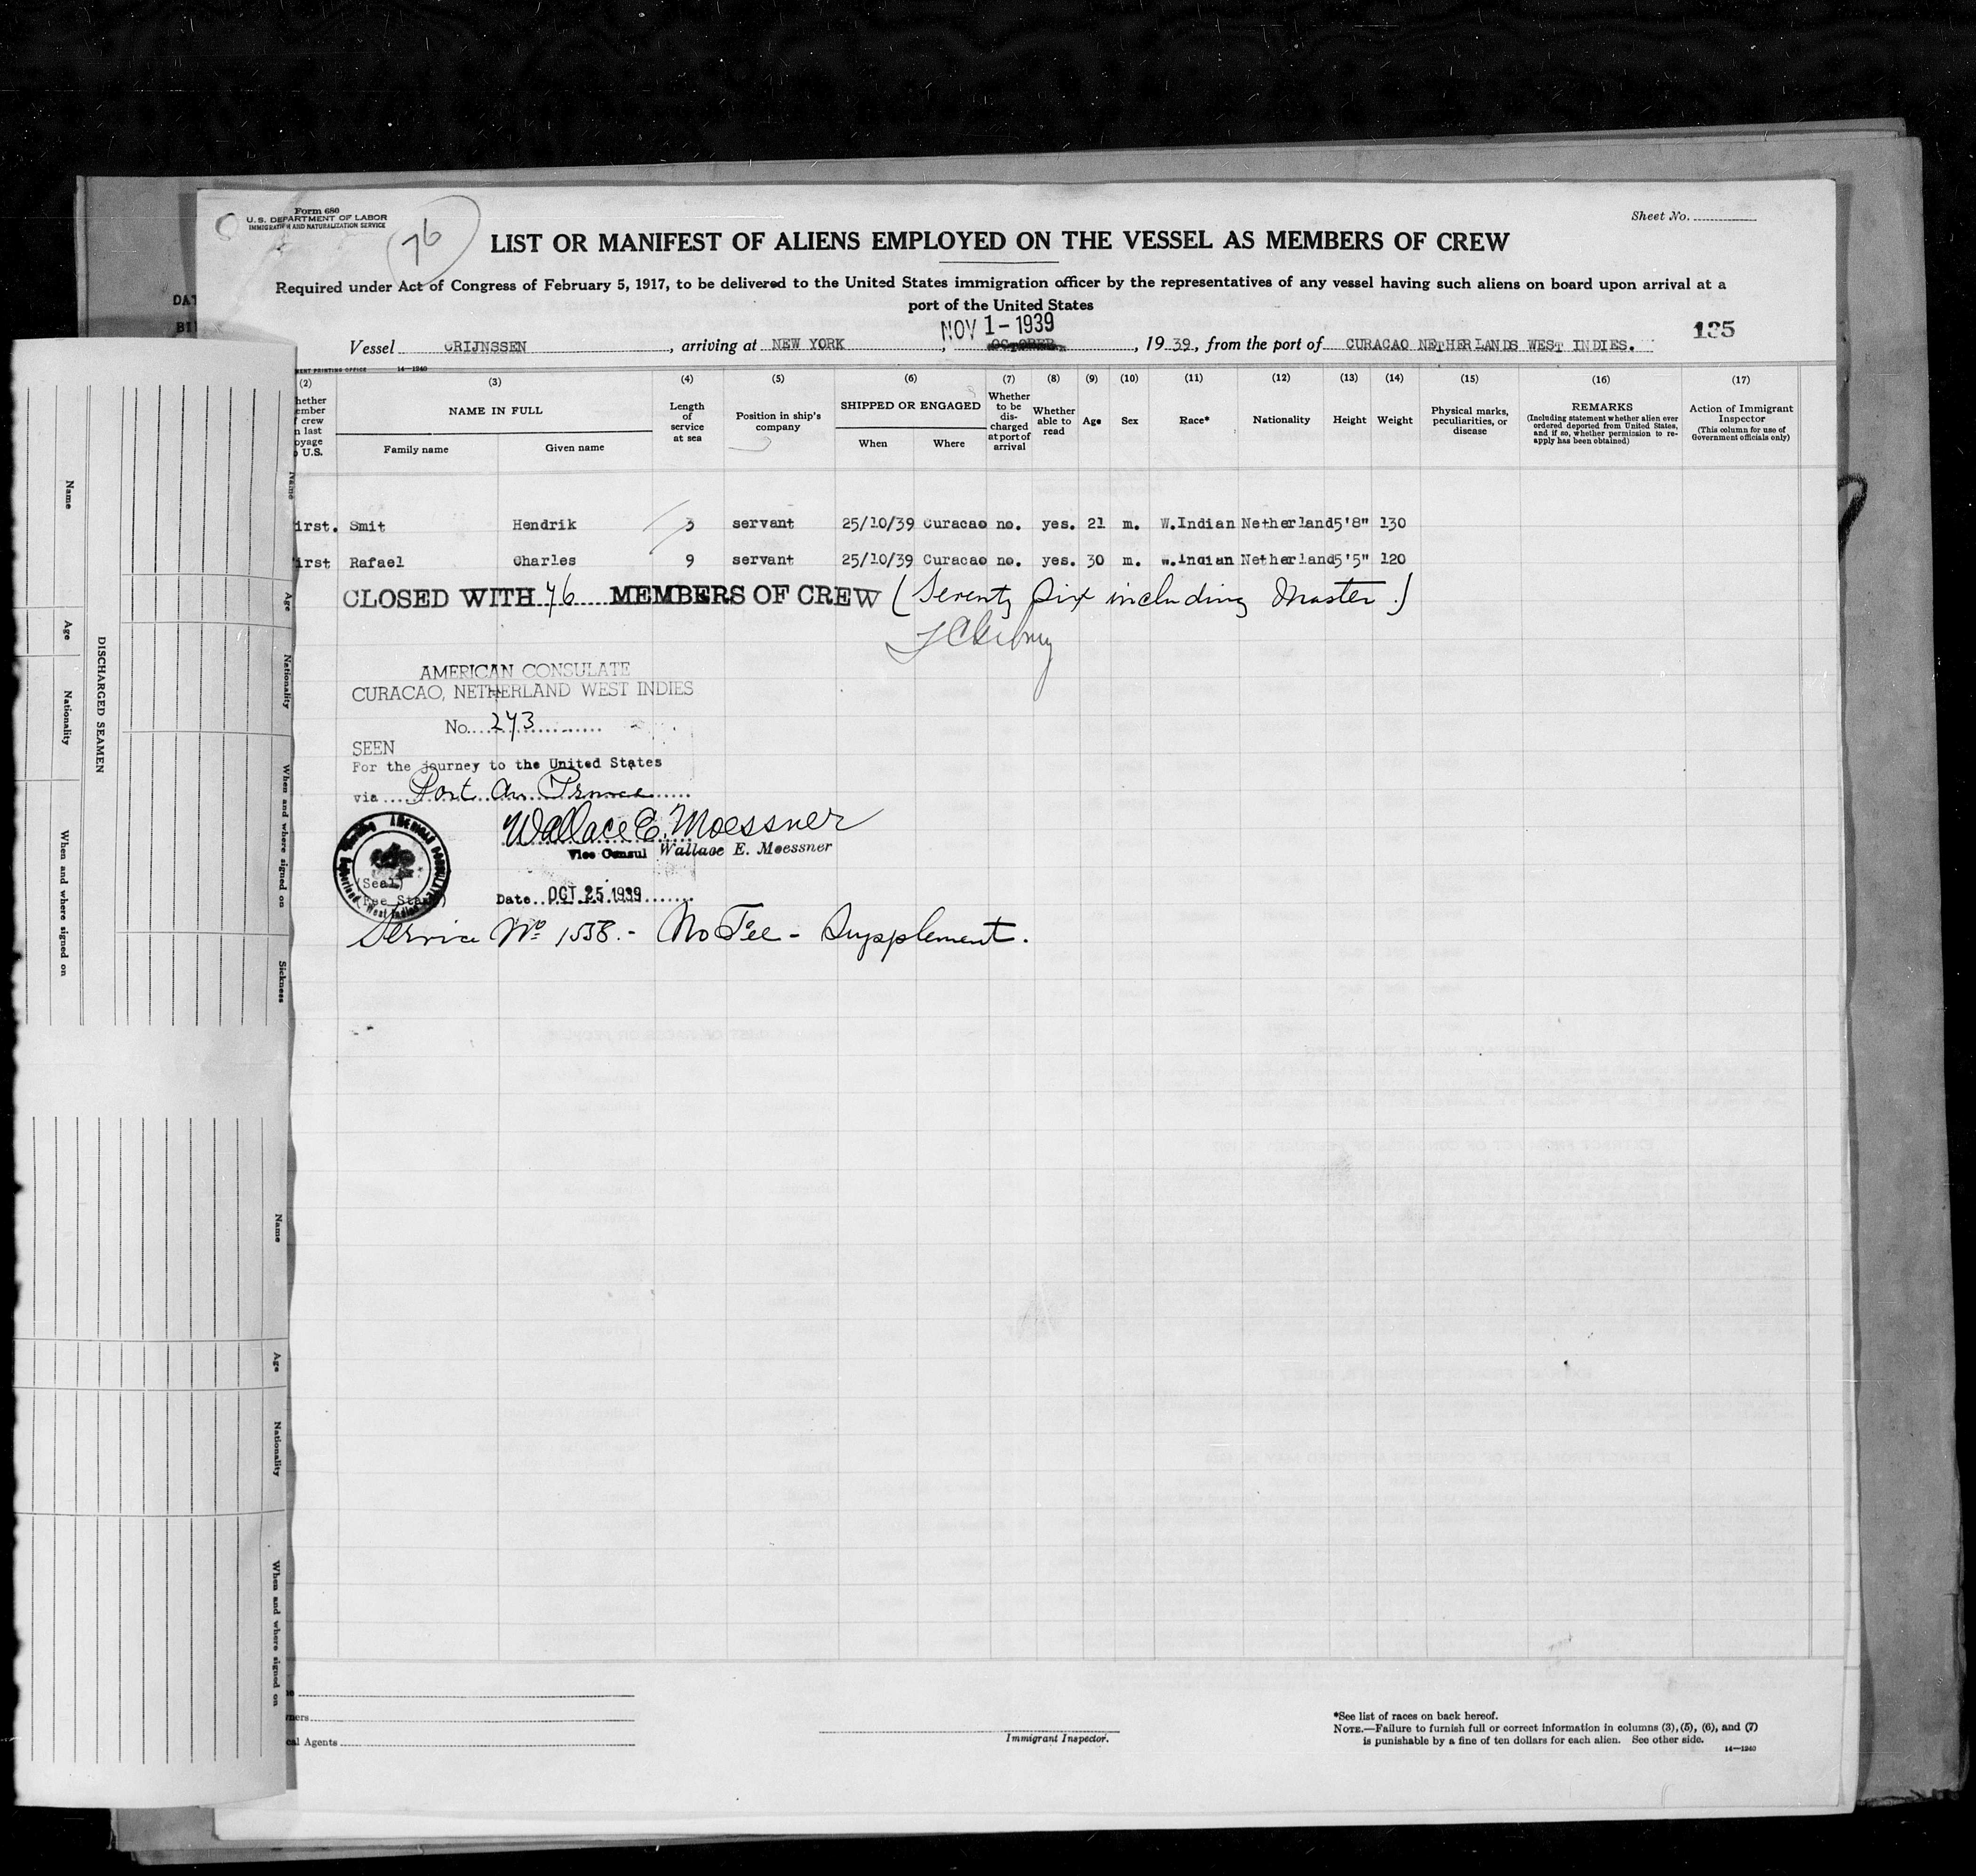 Form 680
U. S. DEPARTMENT OF LABOR
IMMIGRATION AND NATURALIZATION SERVICE
76
Sheet No.
LIST OR MANIFEST OF ALIENS EMPLOYED ON THE VESSEL AS MEMBERS OF CREW
Required under Act of Congress of February 5, 1917, to be delivered to the United States immigration officer by the representatives of any vessel having such aliens on board upon arrival at a
port of the United States
NOV 1 - 1939
135
Vessel CRIJNSSEN, arriving at NEW YORK, OCTOBER, 19 39, from the port of CURACAO NETHERLANDS WEST INDIES.
14—1240
(2) (3) (4) (5) (6) (7) (8) (9) (10) (11) (12) (13) (14) (15) (16) (17)
NAME IN FULL
Family name
Given name
Length of service at sea
Position in ship's company
SHIPPED OR ENGAGED
When
Where
Whether to be discharged at port of arrival
Whether able to read
Age
Sex
Race*
Nationality
Height
Weight
Physical marks, peculiarities, or disease
REMARKS
(Including statement whether alien ever ordered deported from United States, and if so, whether permission to re-apply has been obtained)
Action of Immigrant Inspector
(This column for use of Government officials only)
irst. Smit Hendrik 3 servant 25/10/39 Curacao no. yes. 21 m. W.Indian Netherland 5'8" 130
irst Rafael Charles 9 servant 25/10/39 Curacao no. yes. 30 m. w.Indian Netherland 5'5" 120
CLOSED WITH 76 MEMBERS OF CREW (Seventy Six including Master.)
AMERICAN CONSULATE
CURACAO, NETHERLAND WEST INDIES
No. 243
SEEN
For the journey to the United States
via Port au Prince
Wallace E. Moessner
Vice Consul Wallace E. Moessner
(Seal)
(Fee Stamp)
Date OCT 25 1939
Service No 1558.- No Fee - Supplement.
Name
Age
Nationality
When and where signed on
DISCHARGED SEAMEN
Name
Age
Nationality
When and where signed on
Sickness
Name
Age
Nationality
When and where signed on
Immigrant Inspector.
*See list of races on back hereof.
NOTE.—Failure to furnish full or correct information in columns (3), (5), (6), and (7)
is punishable by a fine of ten dollars for each alien. See other side.
14—1240